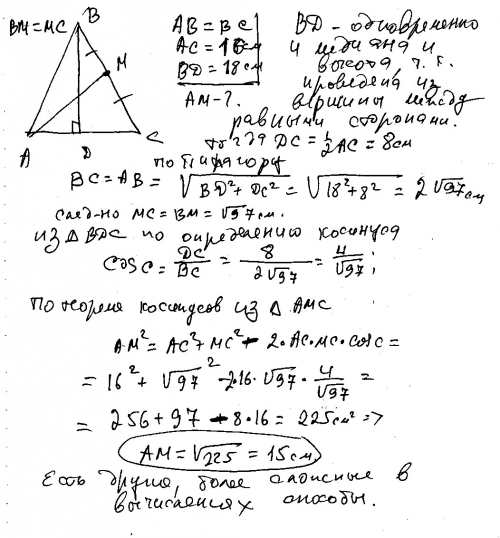 BM = MC
B
M
A
D
C
AB = BC
AC = 16 см
BD = 18 см
AM - ?
BD - одновременно
и медиана и
высота, т. к.
проведена из
вершины между
равными сторонами.
тогда DC = 1/2 AC = 8 см
по Пифагору
BC = AB = √(BD² + DC²) = √(18² + 8²) = 2√97 см
след-но MC = BM = √97 см.
из △ BDC по определению косинуса
cos C = DC/BC = 8/(2√97) = 4/√97;
По теореме косинусов из △ AMC
AM² = AC² + MC² - 2·AC·MC·cos C =
= 16² + √97² - 2·16·√97·4/√97 =
= 256 + 97 - 8·16 = 225 см² =>
AM = √225 = 15 см
Есть другие, более сложные в
вычислениях способы.